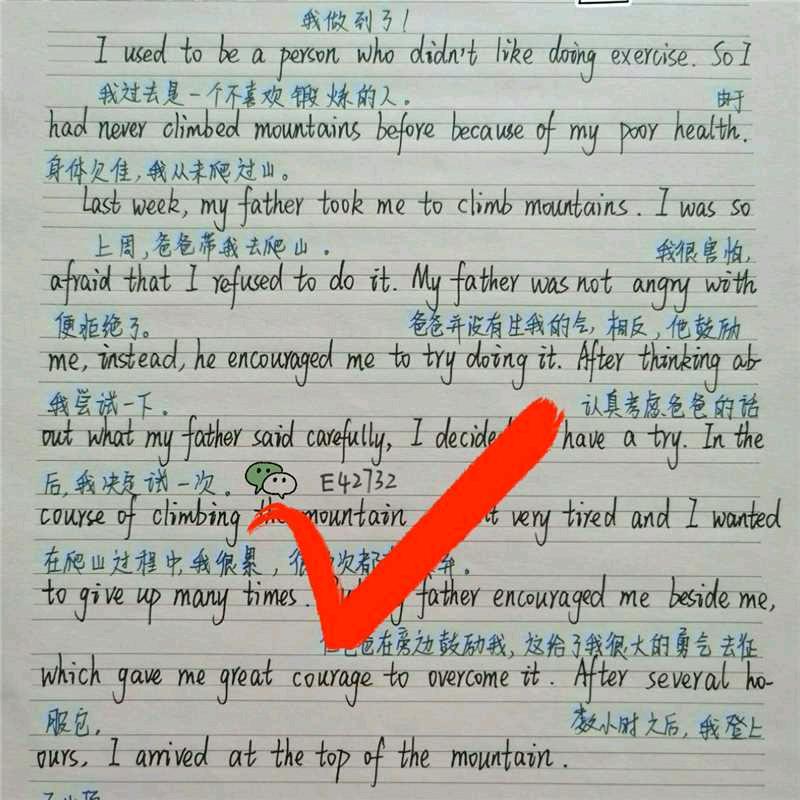 我做到了!
I used to be a person who didn't like doing exercise. So I
我过去是一个不喜欢锻炼的人。 由于
had never climbed mountains before because of my poor health.
身体欠佳,我从未爬过山。
Last week, my father took me to climb mountains. I was so
上周,爸爸带我去爬山。 我很害怕,
afraid that I refused to do it. My father was not angry with
便拒绝了。 爸爸并没有生我的气,相反,他鼓励
me, instead, he encouraged me to try doing it. After thinking ab-
我尝试一下。 认真考虑爸爸的话
out what my father said carefully, I decide have a try. In the
后,我决定试一次。 E42732
course of climbing the mountain very tired and I wanted
在爬山过程中,我很累, 次都
to give up many times. father encouraged me beside me,
爸在旁边鼓励我,这给了我很大的勇气去征
which gave me great courage to overcome it. After several ho-
服它。 数小时之后,我登上
ours, I arrived at the top of the mountain.